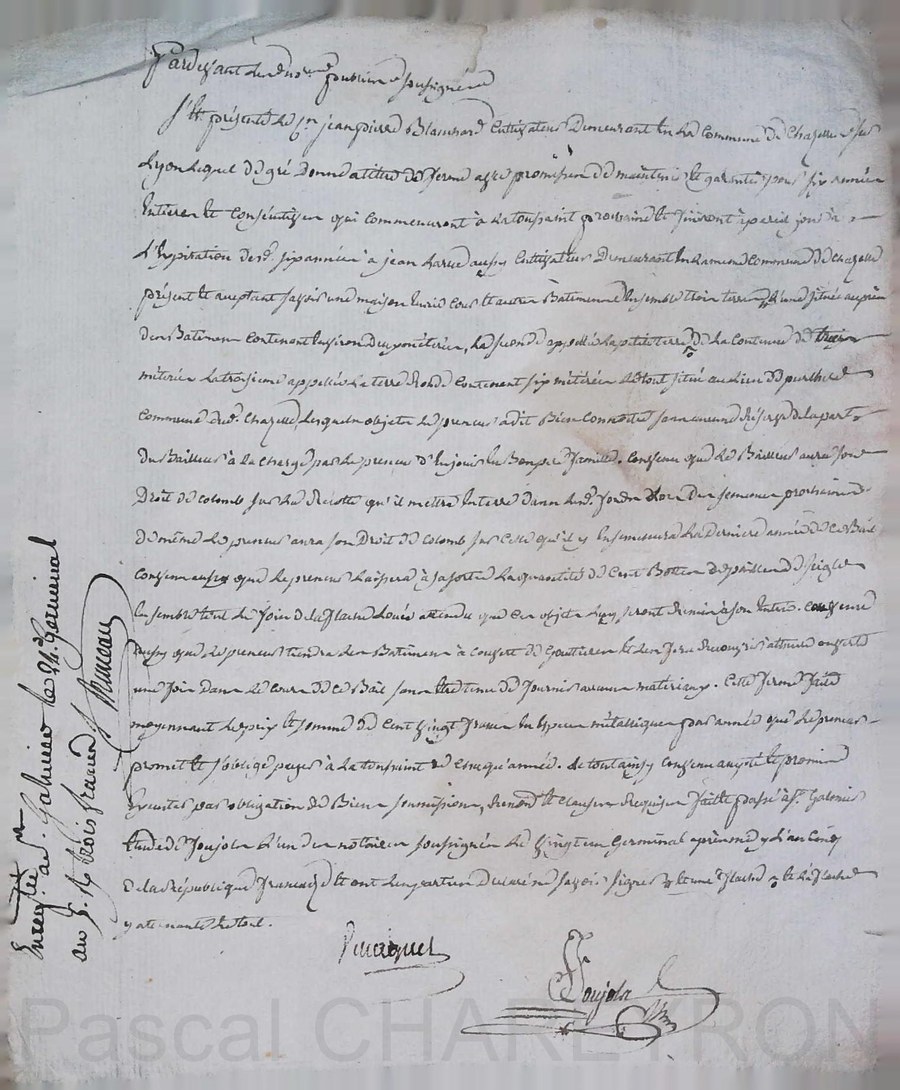 Pardevant les no.res publics soussignés
S'est présenté le C.en jean pierre Blanchard Cultivateur Demeurant en la Commune de Chazelle sur
Lyon Lequel de gré Donne à titre de ferme avec promission de maintenir et garantir pour six années
Entieres et Consécutives qui Commenceront à la toussaint prochaine et finiront à pareil jour à
L'Expiration desd. six années à jean Larue aussy Cultivateur Demeurant en la meme Commune de Chazelle
présent et acceptant savoir une maison Curié Cour et autres Batimens Ensemble trois terres L'une située auprès
des Batimens Contenant Environ deux métérées, La seconde appellée La petite terre de la Contenue de
métérées La troisieme appellée La terre Ronde Contenant six métérées Le tout situé au lieu de
Commune dud. Chazelle, Lesquels objets Le preneur a dit Bien Connoitre sans aucune Réserve de la part
du Bailleur à la Charge par Le preneur d'En jouir En Bon père de famille. Convenu que Le Bailleur aura son
Droit de Colomb sur La Récolte qu'il mettra En terre dans Lesd. fonds Lors des semences prochaines
de même Le preneur aura son Droit de Colomb sur Celle qu'il y Ensemencera La Derniere année de ce Bail
Convenu aussy que Le preneur Laissera à sa sortie La quantité de Cent Bottes de paille de seigle
Ensemble tout Le foin de la flache Louée attendu que Ces objets Luy seront Remis à son Entrée. Convenu
aussy que Le preneur tiendra Les Batimens à Couvert de Gouttieres et Les fera Recouvrir à taille ouverte
une fois dans Le Cours de Ce Bail sans Etre tenu de fournir aucuns matériaux. Cette ferme faite
moyennant Le prix et somme de Cent Vingt francs En Espece métallique par année que Le preneur
promet et s'oblige payer à La toussaint de Chaque année. Le tout ainsy Convenu accepté et promis
Executer par obligation de Biens soumission, Renond. et Clauses Requises fait et passé à S.t Galmier
Etude de Foujols L'un des notaires soussignés Le Vingt un Germinal après midy L'an Cinq
de la République française et ont Les parties Déclaré ne savoir signer et une flache et La flache
y attenante Le tout.
Foujols
Enregistré à S.t Galmier le 24. Germinal
an 5. R. trois francs Bruneau
Pascal CHAREYRON